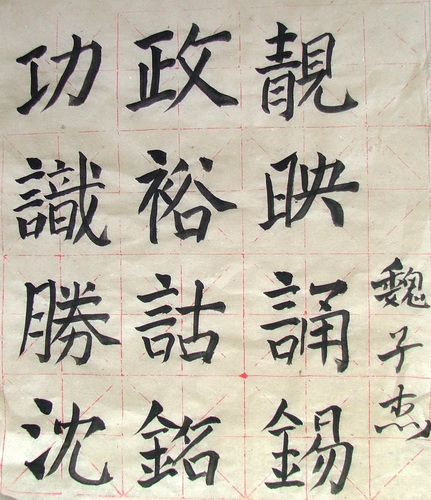 靚映誦錫
政裕詁銘
功識勝沈
魏子杰